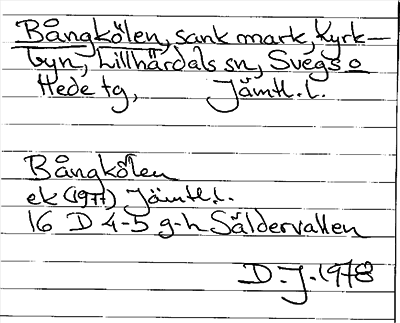 Bångkölen, sank mark, Kyrk-
byn, Lillhärdals sn, Svegs o
Hede tg, Jämtl. l.
Bångkölen
ek (1977) Jämtl. l.
16 D 4-5 g-h Säldervallen
D.J. 1978